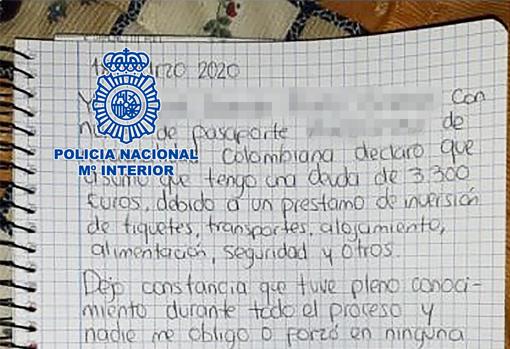 Marzo 2020
Y Con
de pasaporte de
Colombiana declaro que
asumo que tengo una deuda de 3 300
Euros, debido a un prestamo de inversión
de tiquetes, transportes, alojamiento,
alimentación, seguridad y otros.
Dejo constancia que tuve pleno conoci-
miento durante todo el proceso y
nadie me obligo o forzó en ninguna
POLICIA NACIONAL
Mº INTERIOR